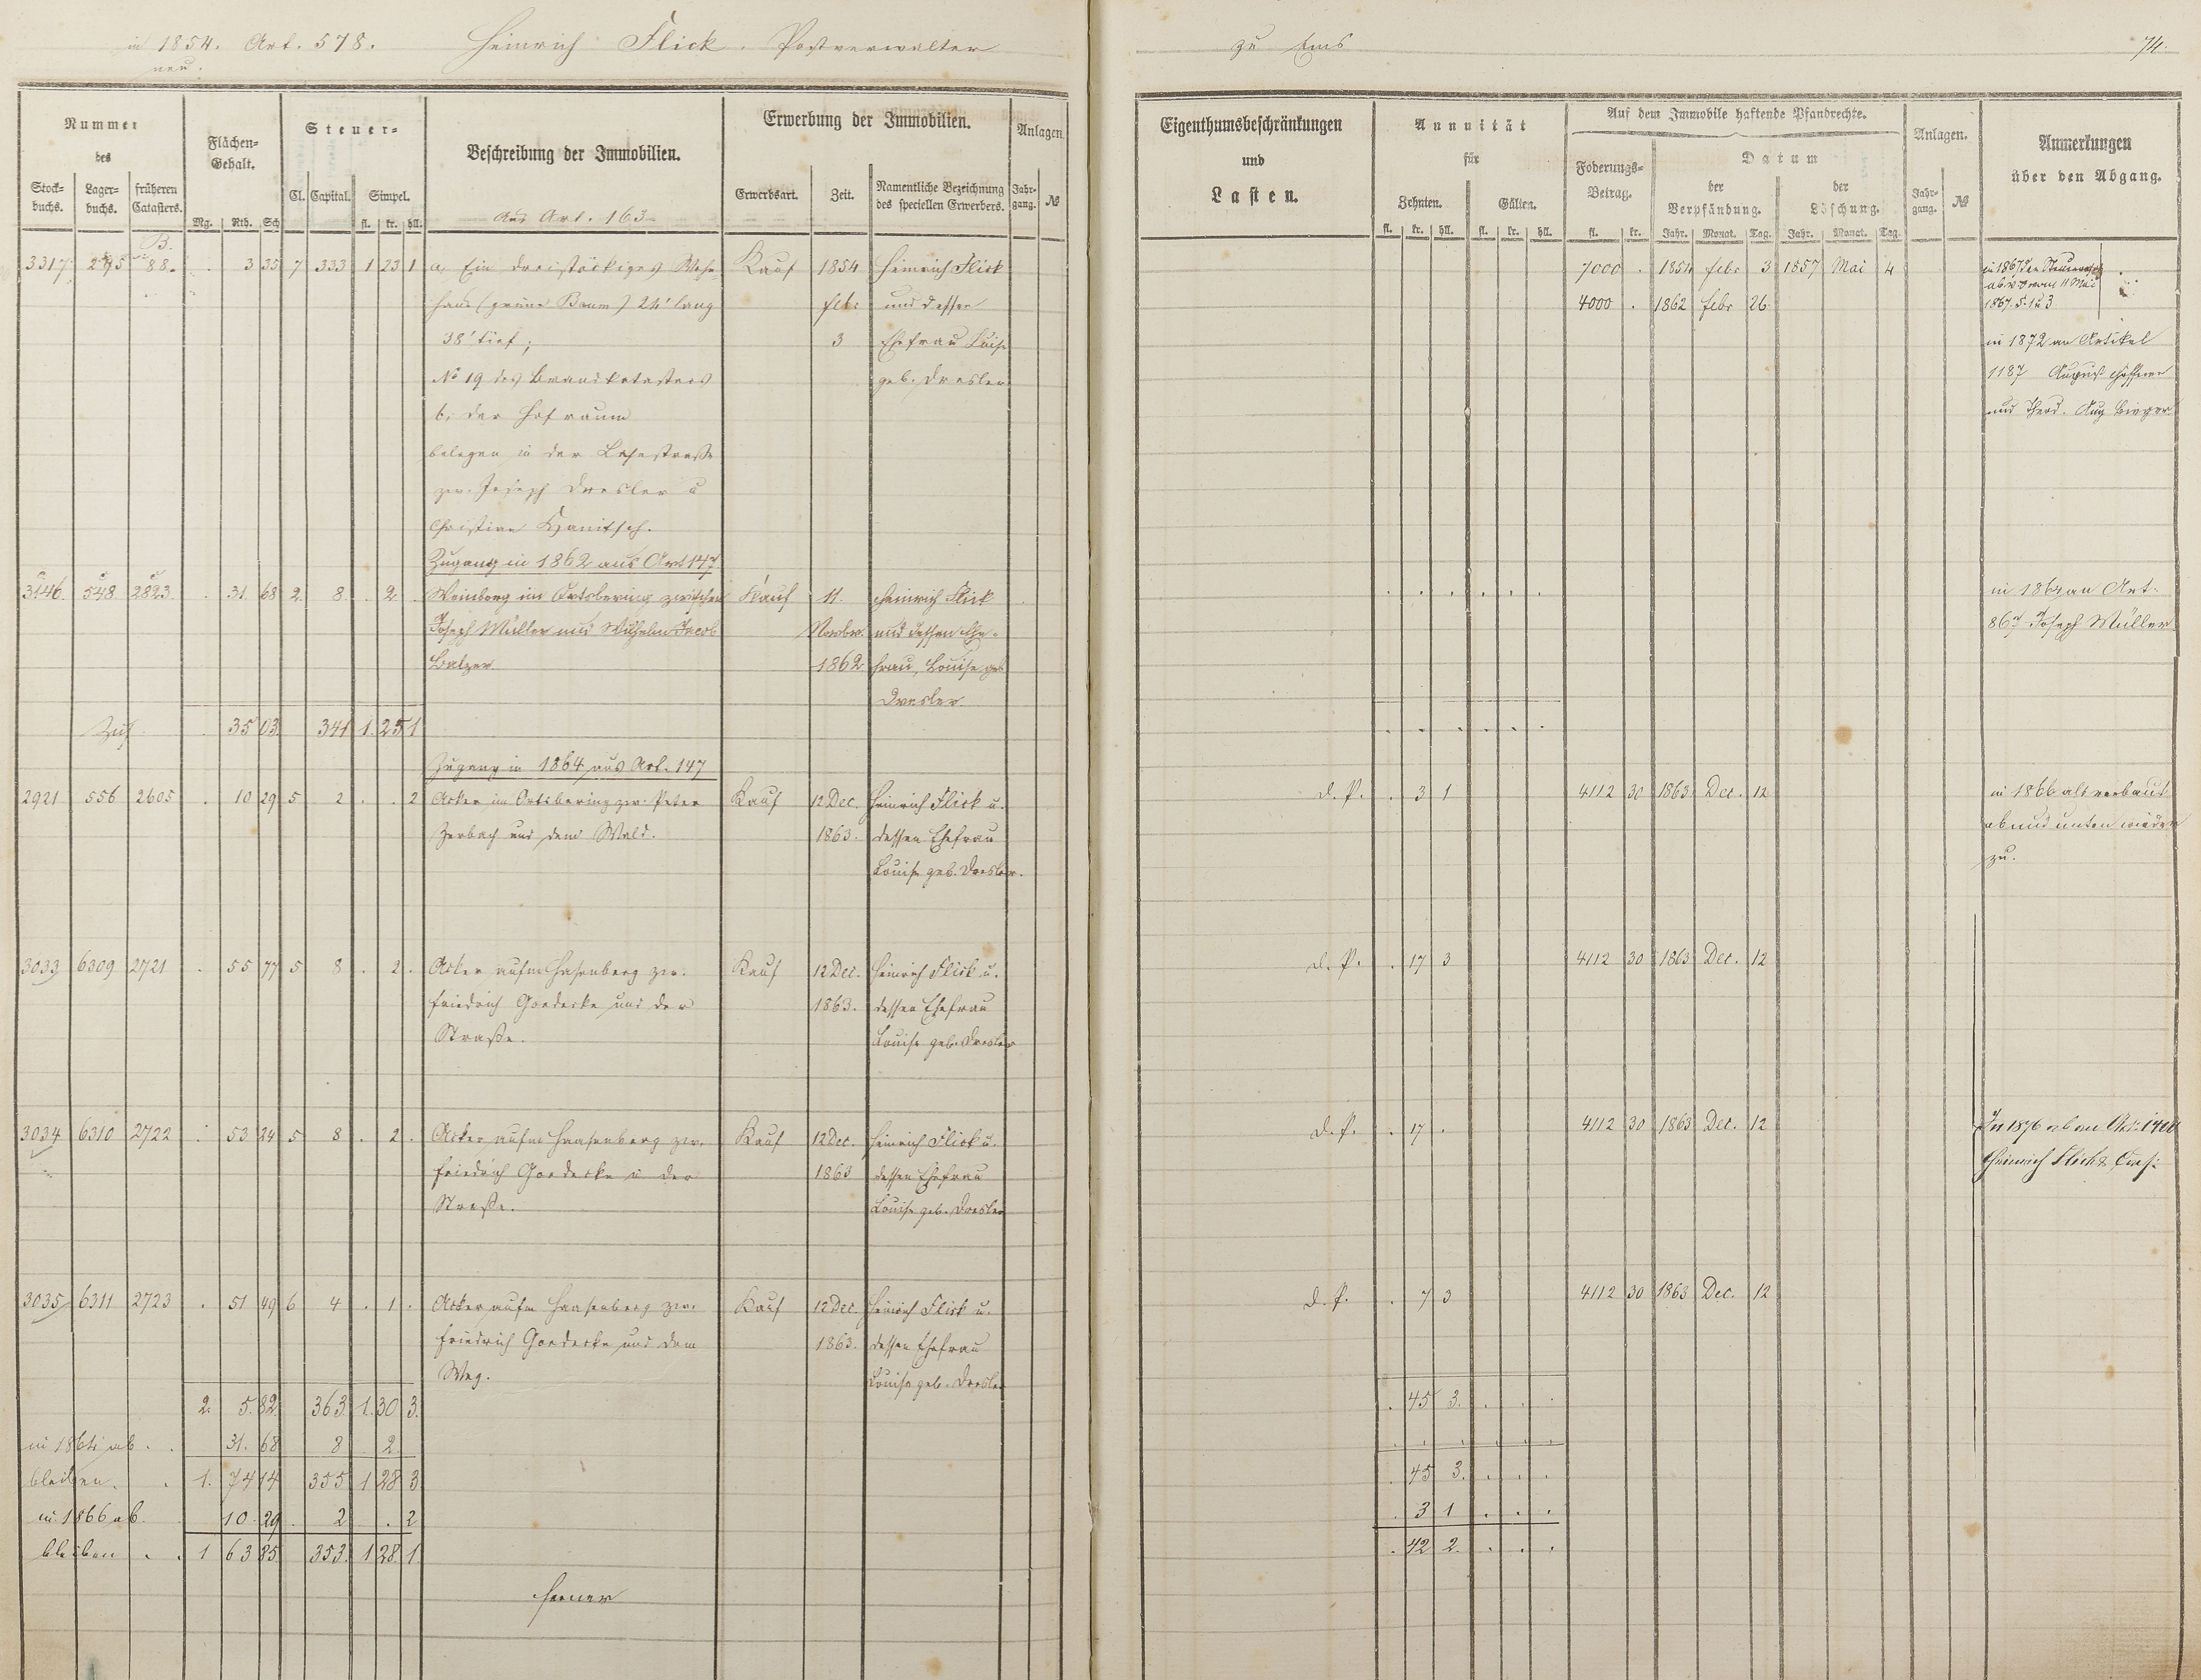 in 1854. Art. 578. Heinrich Flick. Postverwalter zu Ems 74.
neu.
Nummer des
Stock-buchs. Lager-buchs. früheren Catasters.
Flächen-Gehalt.
Mg. Rth. Sch
Steuer-
Cl. Capital. Simpel.
fl. kr. hll.
Beschreibung der Immobilien.
Aus Art. 163
Erwerbung der Immobilien.
Erwerbsart. Zeit. Namentliche Bezeichnung des speciellen Erwerbers.
Anlagen.
Jahr-gang. №
Eigenthumsbeschränkungen
und
Lasten.
Annuität
für
Zehnten. Gülten.
fl. kr. hll. fl. kr. hll.
Auf dem Immobile haftende Pfandrechte.
Foderungs-Betrag. Datum
der Verpfändung. der Löschung.
fl. kr. Jahr. Monat. Tag. Jahr. Monat. Tag.
Anlagen.
Jahr-gang. №
Anmerkungen
über den Abgang.
B.
3317 295 88. . 3 35 7 333 1 23 1 a, Ein dreistöckiges Wohn Kauf 1854 Heinrich Flick 7000 . 1854 febr 3 1857 Mai 4
haus (grüne Baum) 24' lang febr und dessen 4000 . 1862 febr 26 1867. S. 1 u 3
38' tief; 3 Ehefrau Luise in 1872 an Artikel
№ 19 des Brandkatasters geb. Dresler 1187 August
b. der Hofraum und
belegen in der Lahnstraße
zw. Joseph Dresler u
Christian Hanitsch.
Zugang in 1862 aus Art 147
3146. 548. 2823 . 31. 68 2. 8. . 2. . Weinberg im Ortsbering zwischen Kauf 11. Heinrich Flick . . . . . . in 1864 an Art.
Joseph Müller und Wilhelm Jacob Novbr. und dessen Ehe- 867 Joseph Müller
Balzer 1862 frau, Louise geb
Dresler
Zus . 35 03. 341 1. 25 1 . . . . . .
Zugang in 1864 aus Art. 147
2921 556 2605 . 10 29 5 2 . . 2 Acker im Ortsbering zw. Peter Kauf 12 Dec. Heinrich Flick u. d. P. . 3 1 4112 30 1863 Dec. 12 in 1866 als verbaut
Zerbach und dem Wald. 1863. dessen Ehefrau ab und unten wieder
Louise geb. Dresler. zu.
3033 6309 2721 . 55 77 5 8 . 2 . Acker aufm Hasenberg zw. Kauf 12 Dec. Heinrich Flick u. d. P. . 17 3 4112 30 1863 Dec. 12
Friedrich Goedecke und der 1863. dessen Ehefrau
Straße. Louise geb. Dresler
3034 6310 2722 . 53 24 5 8 . 2 . Acker aufm Haasenberg zw. Kauf 12 Dec. Heinrich Flick u. d. P. . 17 . 4112 30 1863 Dec. 12 In 1876 ab an Art.
Friedrich Goedecke u der 1863 dessen Ehefrau Heinrich Flick &
Straße. Louise geb. Dresler
3035 6311 2723 . 51 49 6 4 . 1 . Acker aufm Haasenberg zw. Kauf 12 Dec. Heinrich Flick u. d. P. . 7 3 4112 30 1863 Dec. 12
Friedrich Goedecke und dem 1863. dessen Ehefrau
Weg. Louise geb. Dresler
2. 5. 82. 363 1. 30 3. . 45 3. . . .
in 1864 ab . . 31. 68 8 . 2. . . . . . .
bleiben. . 1. 74 14 355 1 28 3 . 45 3. . . .
in 1866 ab. 10. 29 . 2 . . 2 . 3 1 . . .
bleiben . . 1 63 85 353. 1 28 1. . 42 2. . . .
ferner